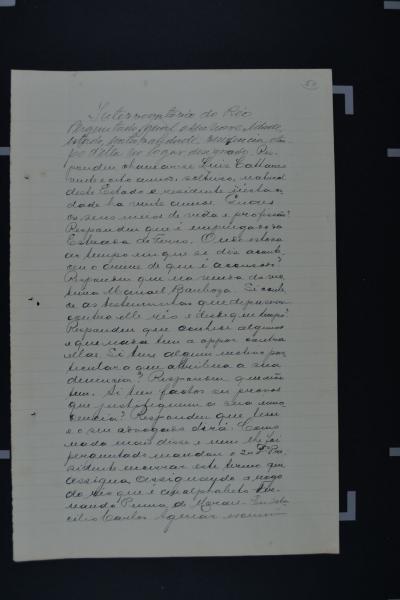 Interrogatorio do Réo
Perguntado qual o seu nome, idade,
estado, naturalidade, residencia
no logar designado. Res-
pondeu chamar-se Luiz Cattaneo
vinte e oito annos, solteiro, natural
deste Estado e residente nesta ci-
dade ha vinte annos. Quaes
os seus meios de vida e profissão?
Respondeu que é empregado na
Estrada de Ferro. Onde estava
ao tempo em que se diz aconte-
ceu o crime de que é accusado?
Respondeu que na venda de
Manoel Barboza. Si conhe-
ce as testemunhas que depuseram
contra elle réo e desde que tempo?
Respondeu que conhece algumas
e que nada tem a oppor contra
ellas. Si tem algum motivo par-
ticular a que attribua a sua
denuncia? Respondeu que não
tem. Si tem factos ou provas
que justifiquem a sua inno-
cencia? Respondeu que tem
e o seu advogado dirá. Como
nada mais disse e nem lhe foi
perguntado mandou o Dr. Pre-
sidente lavrar este termo que
assigna, assignando a rogo
do réo que é analphabeto
de Moraes. Eu
Carlos Aguiar escrivão